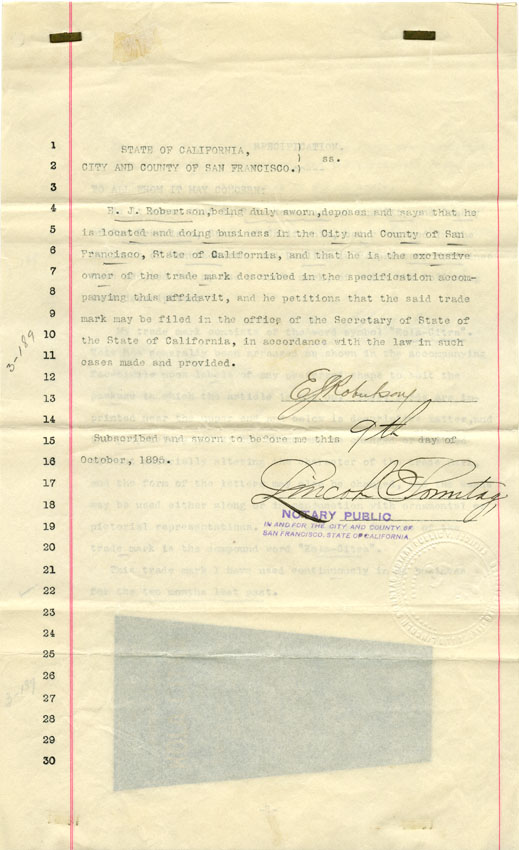 1 STATE OF CALIFORNIA, )
) ss.
2 CITY AND COUNTY OF SAN FRANCISCO. )
SPECIFICATION.
3 TO ALL WHOM IT MAY CONCERN:
4 E. J. Robertson, being duly sworn, deposes and says that he
5 is located and doing business in the City and County of San
6 Francisco, State of California, and that he is the exclusive
7 owner of the trade mark described in the specification accom-
8 panying this affidavit, and he petitions that the said trade
9 mark may be filed in the office of the Secretary of State of
10 the State of California, in accordance with the law in such
11 cases made and provided.
3-189
12
13 E J Robertson
14
15 Subscribed and sworn to before me this 9th day of
16 October, 1895.
17 Lincoln Sonntag
18 NOTARY PUBLIC
IN AND FOR THE CITY AND COUNTY OF
SAN FRANCISCO, STATE OF CALIFORNIA
19 pictorial representations.
20 trade mark is the compound word "Kola-Citra".
21 This trade mark I have used continuously in business
22 for the two months last past.
23
24
25
26
3-189
27
28
29
30